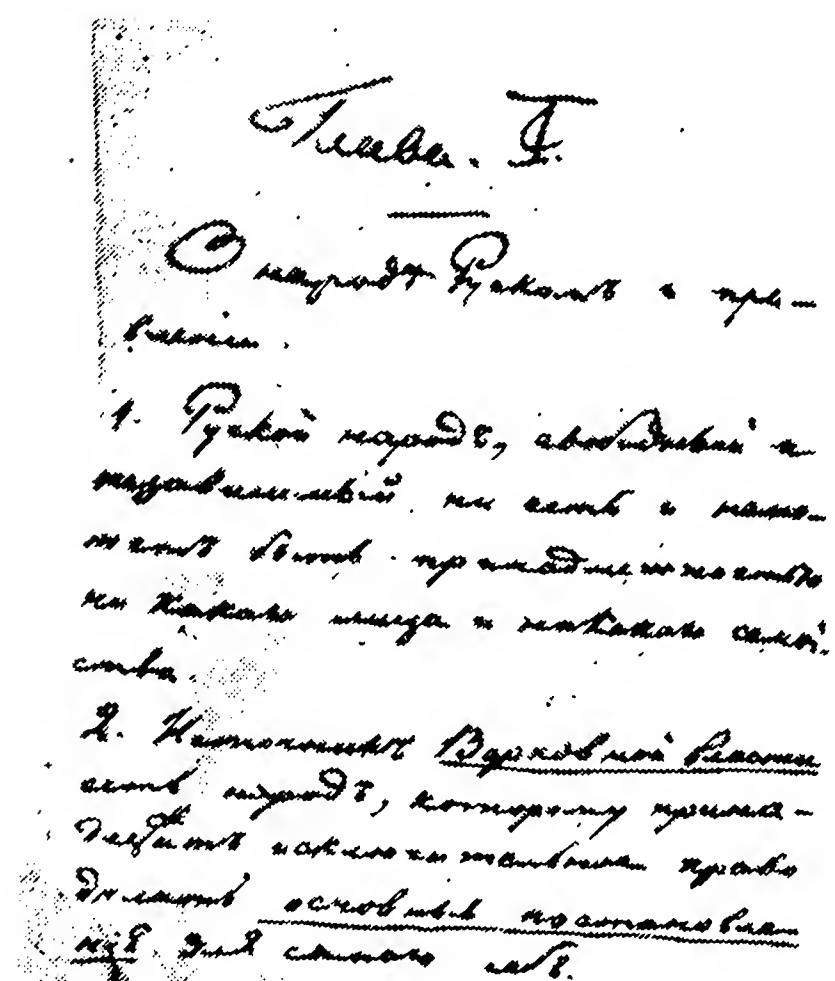 Глава. I.
О народѣ Рускомъ и пра-
вленіи.
1. Руской народъ, свободный и
независимый, не есть и не мо-
жетъ быть принадлежностью
ни какого лица и никакого семѣй-
ства.
2. Источникъ Верховной власти
есть народъ, которому принад-
лежитъ исключительное право
дѣлать основныя постановле-
нія для самого себя.